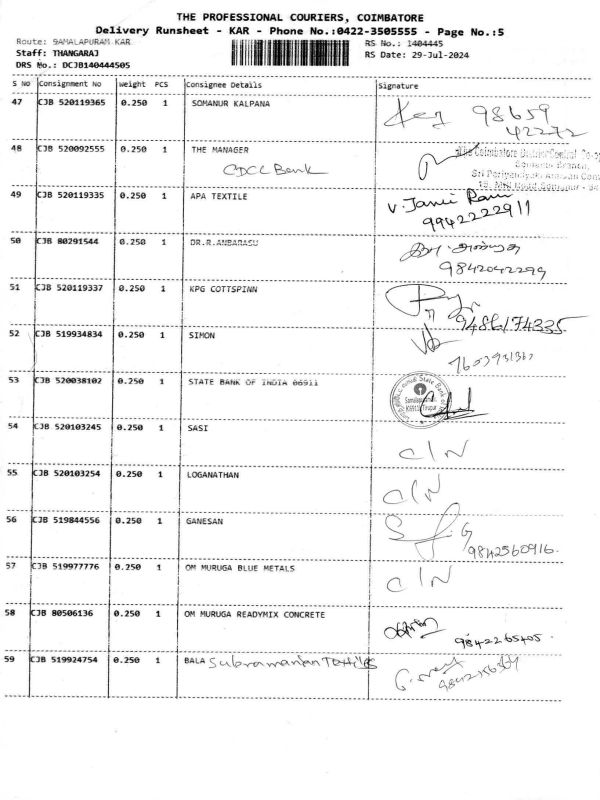 THE PROFESSIONAL COURIERS, COIMBATORE
Delivery Runsheet - KAR - Phone No.:0422-3505555 - Page No.:5
Route: SAMALAPURAM KAR
RS No.: 1404445
Staff: THANGARAJ
RS Date: 29-Jul-2024
DRS No.: DCJB140444505
S No Consignment No Weight PCS Consignee Details Signature
47 CJB 520119365 0.250 1 SOMANUR KALPANA
98659
42272
48 CJB 520092555 0.250 1 THE MANAGER
CDCC Bank
49 CJB 520119335 0.250 1 APA TEXTILE
9942222911
50 CJB 80291544 0.250 1 DR.R.ANBARASU
9842042299
51 CJB 520119337 0.250 1 KPG COTTSPINN
9486174335
52 CJB 519934834 0.250 1 SIMON
53 CJB 520038102 0.250 1 STATE BANK OF INDIA 06911
54 CJB 520103245 0.250 1 SASI
C/N
55 CJB 520103254 0.250 1 LOGANATHAN
C/N
56 CJB 519844556 0.250 1 GANESAN
9842560916.
57 CJB 519977776 0.250 1 OM MURUGA BLUE METALS
C/N
58 CJB 80506136 0.250 1 OM MURUGA READYMIX CONCRETE
9842265405.
59 CJB 519924754 0.250 1 BALA Subramanian Textiles